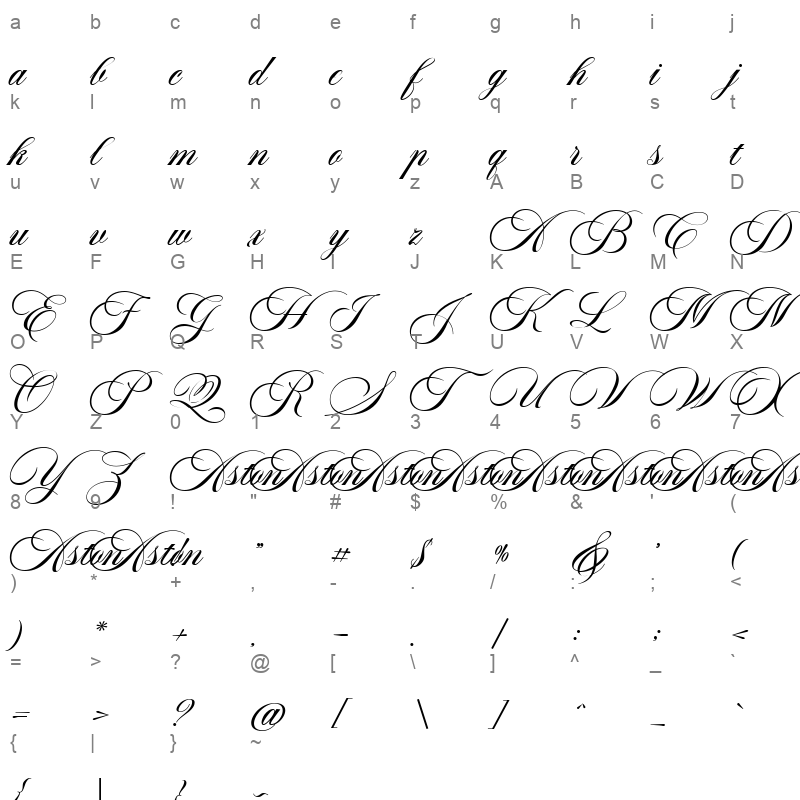 a b c d e f g h i j
a b c d e f g h i j
k l m n o p q r s t
k l m n o p q r s t
u v w x y z A B C D
u v w x y z A B C D
E F G H I J K L M N
E F G H I J K L M N
O P Q R S T U V W X
O P Q R S T U V W X
Y Z 0 1 2 3 4 5 6 7
Y Z Aston Aston Aston Aston Aston Aston Aston Aston
8 9 ! " # $ % & ' (
Aston Aston ! " # $ % & ' (
) * + , - . / : ; <
) * + , - . / : ; <
= > ? @ [ \ ] ^ _ `
= > ? @ [ \ ] ^ _ `
{ | } ~
{ | } ~